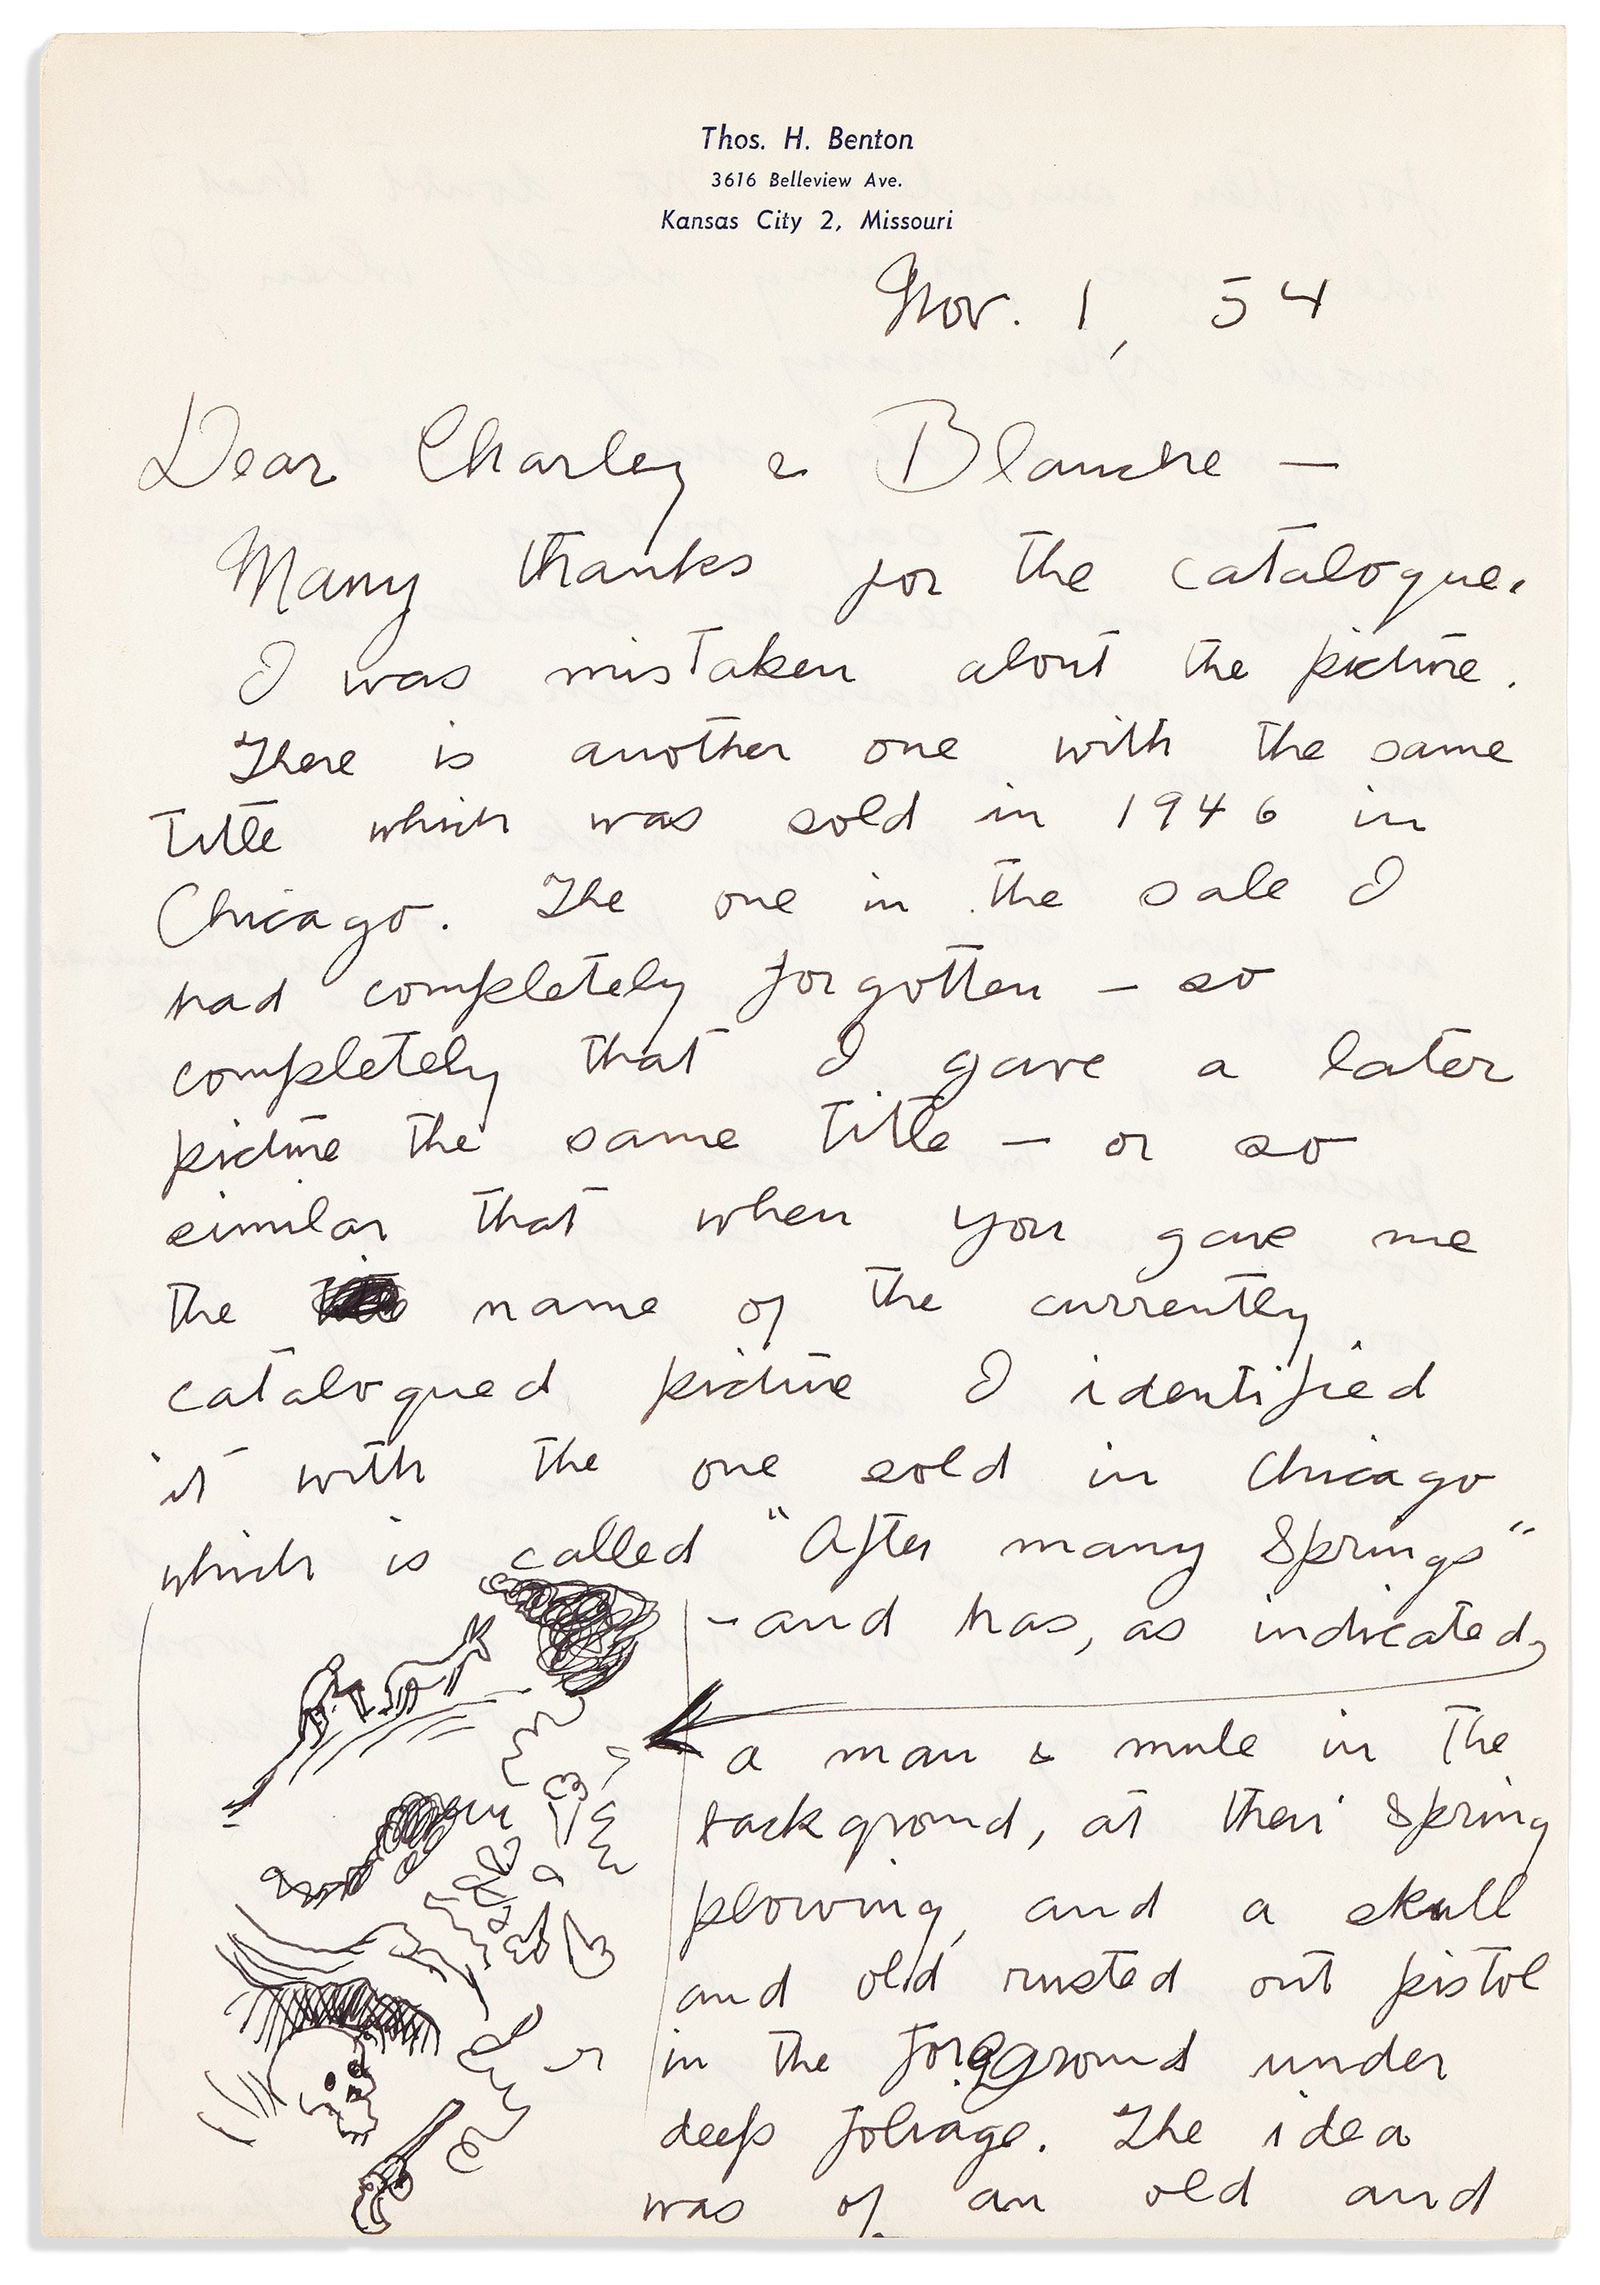 Thos. H. Benton
3616 Belleview Ave.
Kansas City 2, Missouri
Nov. 1, 54
Dear Charley & Blanche —
Many thanks for the catalogue.
I was mistaken about the picture.
There is another one with the same
title which was sold in 1946 in
Chicago. The one in the sale I
had completely forgotten — so
completely that I gave a later
picture the same title — or so
similar that when you gave me
the name of the currently
catalogued picture I identified
it with the one sold in Chicago
which is called "After many Springs"
— and has, as indicated,
a man & mule in the
background, at their Spring
plowing, and a skull
and old rusted out pistol
in the foreground under
deep foliage. The idea
was of an old and